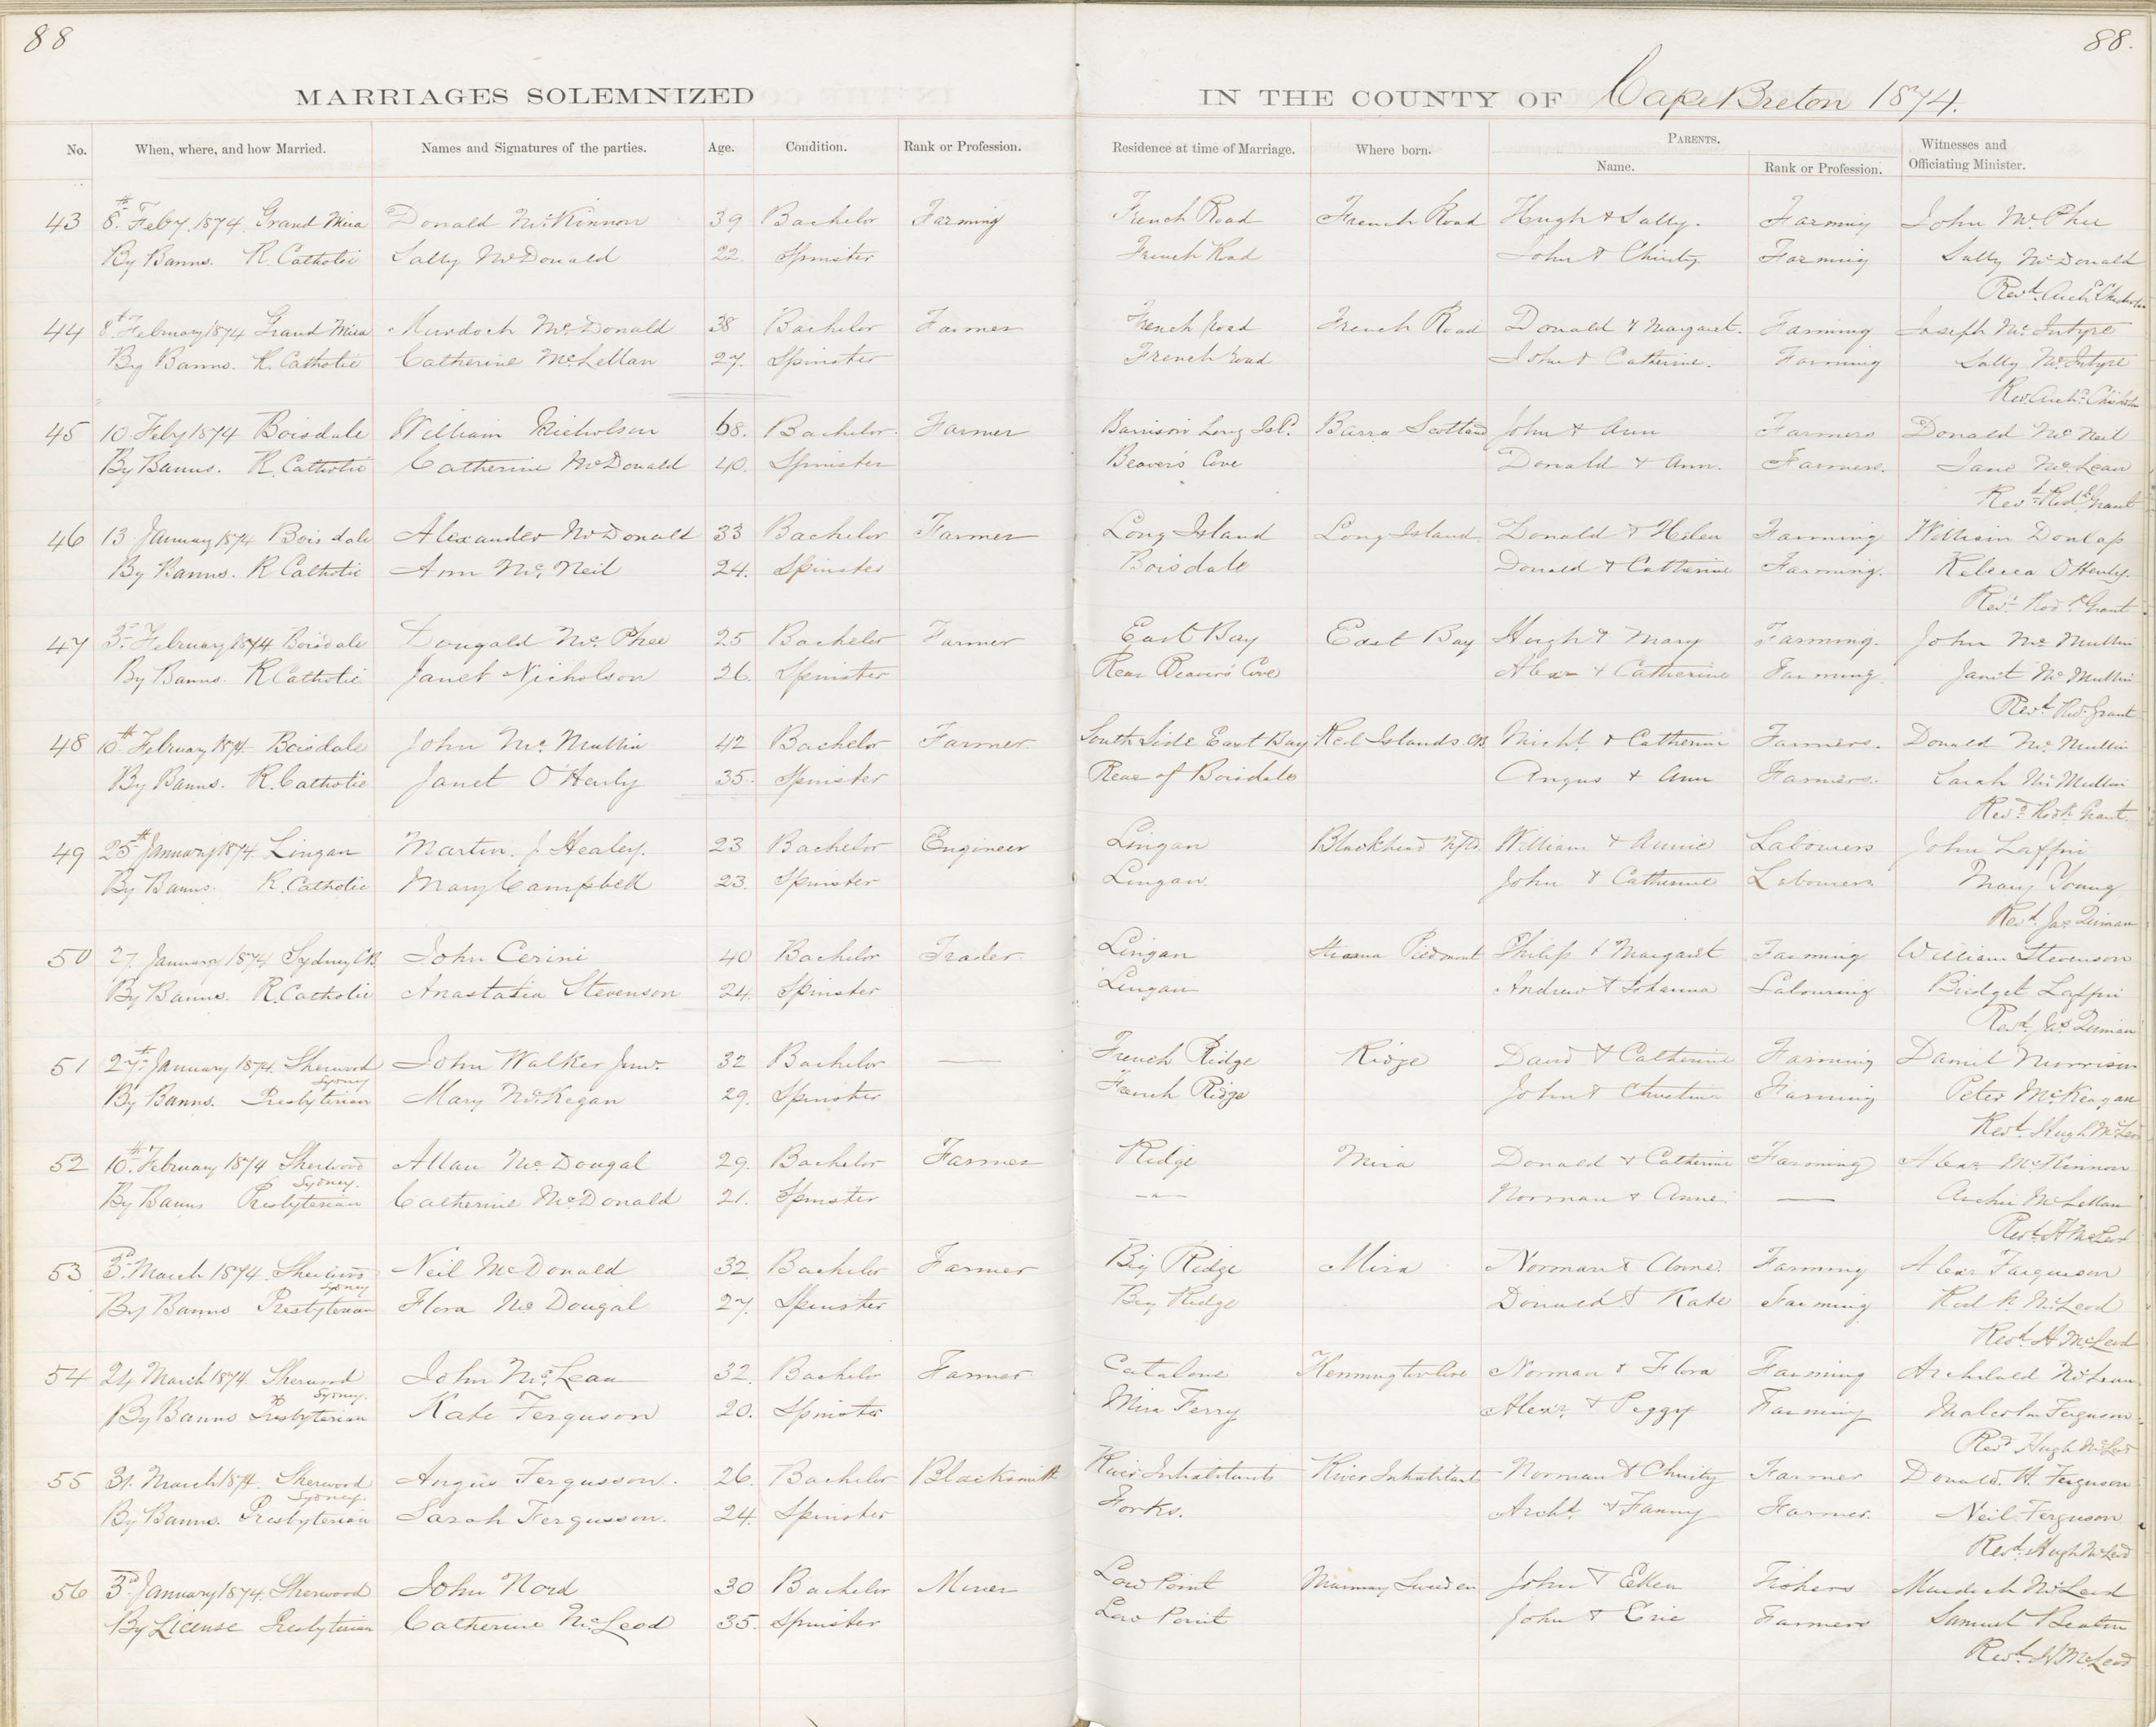 88
88.
MARRIAGES SOLEMNIZED IN THE COUNTY OF Cape Breton 1874.
No. When, where, and how Married. Names and Signatures of the parties. Age. Condition. Rank or Profession. Residence at time of Marriage. Where born. PARENTS. Name. Rank or Profession. Witnesses and Officiating Minister.
43 8th Feby. 1874 Grand Mira Donald McKinnon 39 Bachelor Farming French Road French Road Hugh & Sally. Farming John McPhee
By Banns. R. Catholic Sally McDonald 22. Spinster French Road John & Christy Farming Sally McDonald
Revd. Archd. Chisholm
44 8th February 1874 Grand Mira Murdoch McDonald 38 Bachelor Farmer French Road French Road Donald & Margaret. Farming Joseph McIntyre
By Banns. R. Catholic Catherine McLellan 27. Spinster French Road John & Catherine. Farming Sally McIntyre
Rev. Archd. Chisholm
45 10 Feby 1874 Boisdale William Nicholson 68. Bachelor. Farmer Long Isld. Barra Scotland John & Ann Farmers Donald McNeil
By Banns. R. Catholic Catherine McDonald 40. Spinster Beaver's Cove Donald & Ann. Farmers. Jane McLean
Revd. Rodk. Grant
46 13 January 1874 Boisdale Alexander McDonald 33 Bachelor Farmer Long Island Long Island Donald & Helen Farming William Dunlap
By Banns. R Catholic Ann McNeil 24. Spinster Boisdale Donald & Catherine Farming. Rebecca O'Henly.
Revd. Rodk. Grant
47 3d. February 1874 Boisdale Dougald McPhee 25 Bachelor Farmer East Bay East Bay Hugh & Mary Farming. John McMullin
By Banns. R Catholic Janet Nicholson 26. Spinster Rear Beaver's Cove Alexr & Catherine Farming. Janet McMullin
Revd. Rod. Grant
48 10th February 1874 Boisdale John McMullin 42 Bachelor Farmer. South Side East Bay Red Islands C.B. Michl. & Catherine Farmers. Donald McMullin
By Banns. R. Catholic Janet O'Henly 35. Spinster Rear of Boisdale Angus & Ann Farmers. Sarah McMullin
Revd. Rodk. Grant
49 25th January 1874 Lingan Martin J Healey. 23 Bachelor Engineer Lingan Blackhead Nfld. William & Annie Labourers John Laffin
By Banns. R. Catholic Mary Campbell 23. Spinster Lingan John & Catherine Labourers Mary Young
Revd. Jas Quinan
50 27. January 1874 Sydney CB. John Cerini 40 Bachelor Trader Lingan Piedmont Philip & Margaret Farming William Stevenson
By Banns. R. Catholic Anastatia Stevenson 24. Spinster Lingan Andrew & Johanna Labouring Bridget Laffin
Revd. Jas Quinan
51 27th January 1874. Sherwood Sydney John Walker Junr. 32 Bachelor — French Ridge Ridge David & Catherine Farming Daniel Morrison
By Banns. Presbyterian Mary McKegan 29. Spinster French Ridge John & Christina Farming Peter McKeagan
Revd. Hugh McLeod
52 10th February 1874 Sherwood Sydney. Allan McDougal 29. Bachelor Farmer Ridge Mira Donald & Catherine Farming Alexr McKinnon
By Banns Presbyterian Catherine McDonald 21. Spinster —"— Norman & Anne — Archie McLellan
Revd. H McLeod
53 3d. March 1874. Sherwood Sydney Neil McDonald 32. Bachelor Farmer Big Ridge Mira Norman & Anne. Farming Alexr Farguson
By Banns Presbyterian Flora McDougal 27. Spinster Big Ridge Donald & Kate Farming Rodk. McLeod
Revd. H McLeod
54 24 March 1874 Sherwood Sydney. John McLean 32. Bachelor Farmer Catalone Kennington Cove Norman & Flora Farming Archibald McLean
By Banns Presbyterian Kate Ferguson 20. Spinster Mira Ferry Alexr. & Peggy Farming Malcolm Ferguson
Revd Hugh McLeod
55 31. March 1874. Sherwood Sydney. Angus Fergusson. 26. Bachelor Blacksmith River Inhabitants River Inhabitants Norman & Christy Farmer Donald. H. Ferguson
By Banns. Presbyterian Sarah Fergusson. 24. Spinster Forks. Archd. & Fanny Farmer. Neil Ferguson
Revd. Hugh McLeod
56 3d. January 1874. Sherwood John Nord 30 Bachelor Miner Low Point Sweden John & Ellen Fishers Murdoch McLeod
By License Presbyterian Catherine McLeod 35. Spinster Low Point John & Erie Farmers Samuel Beaton
Revd. H McLeod